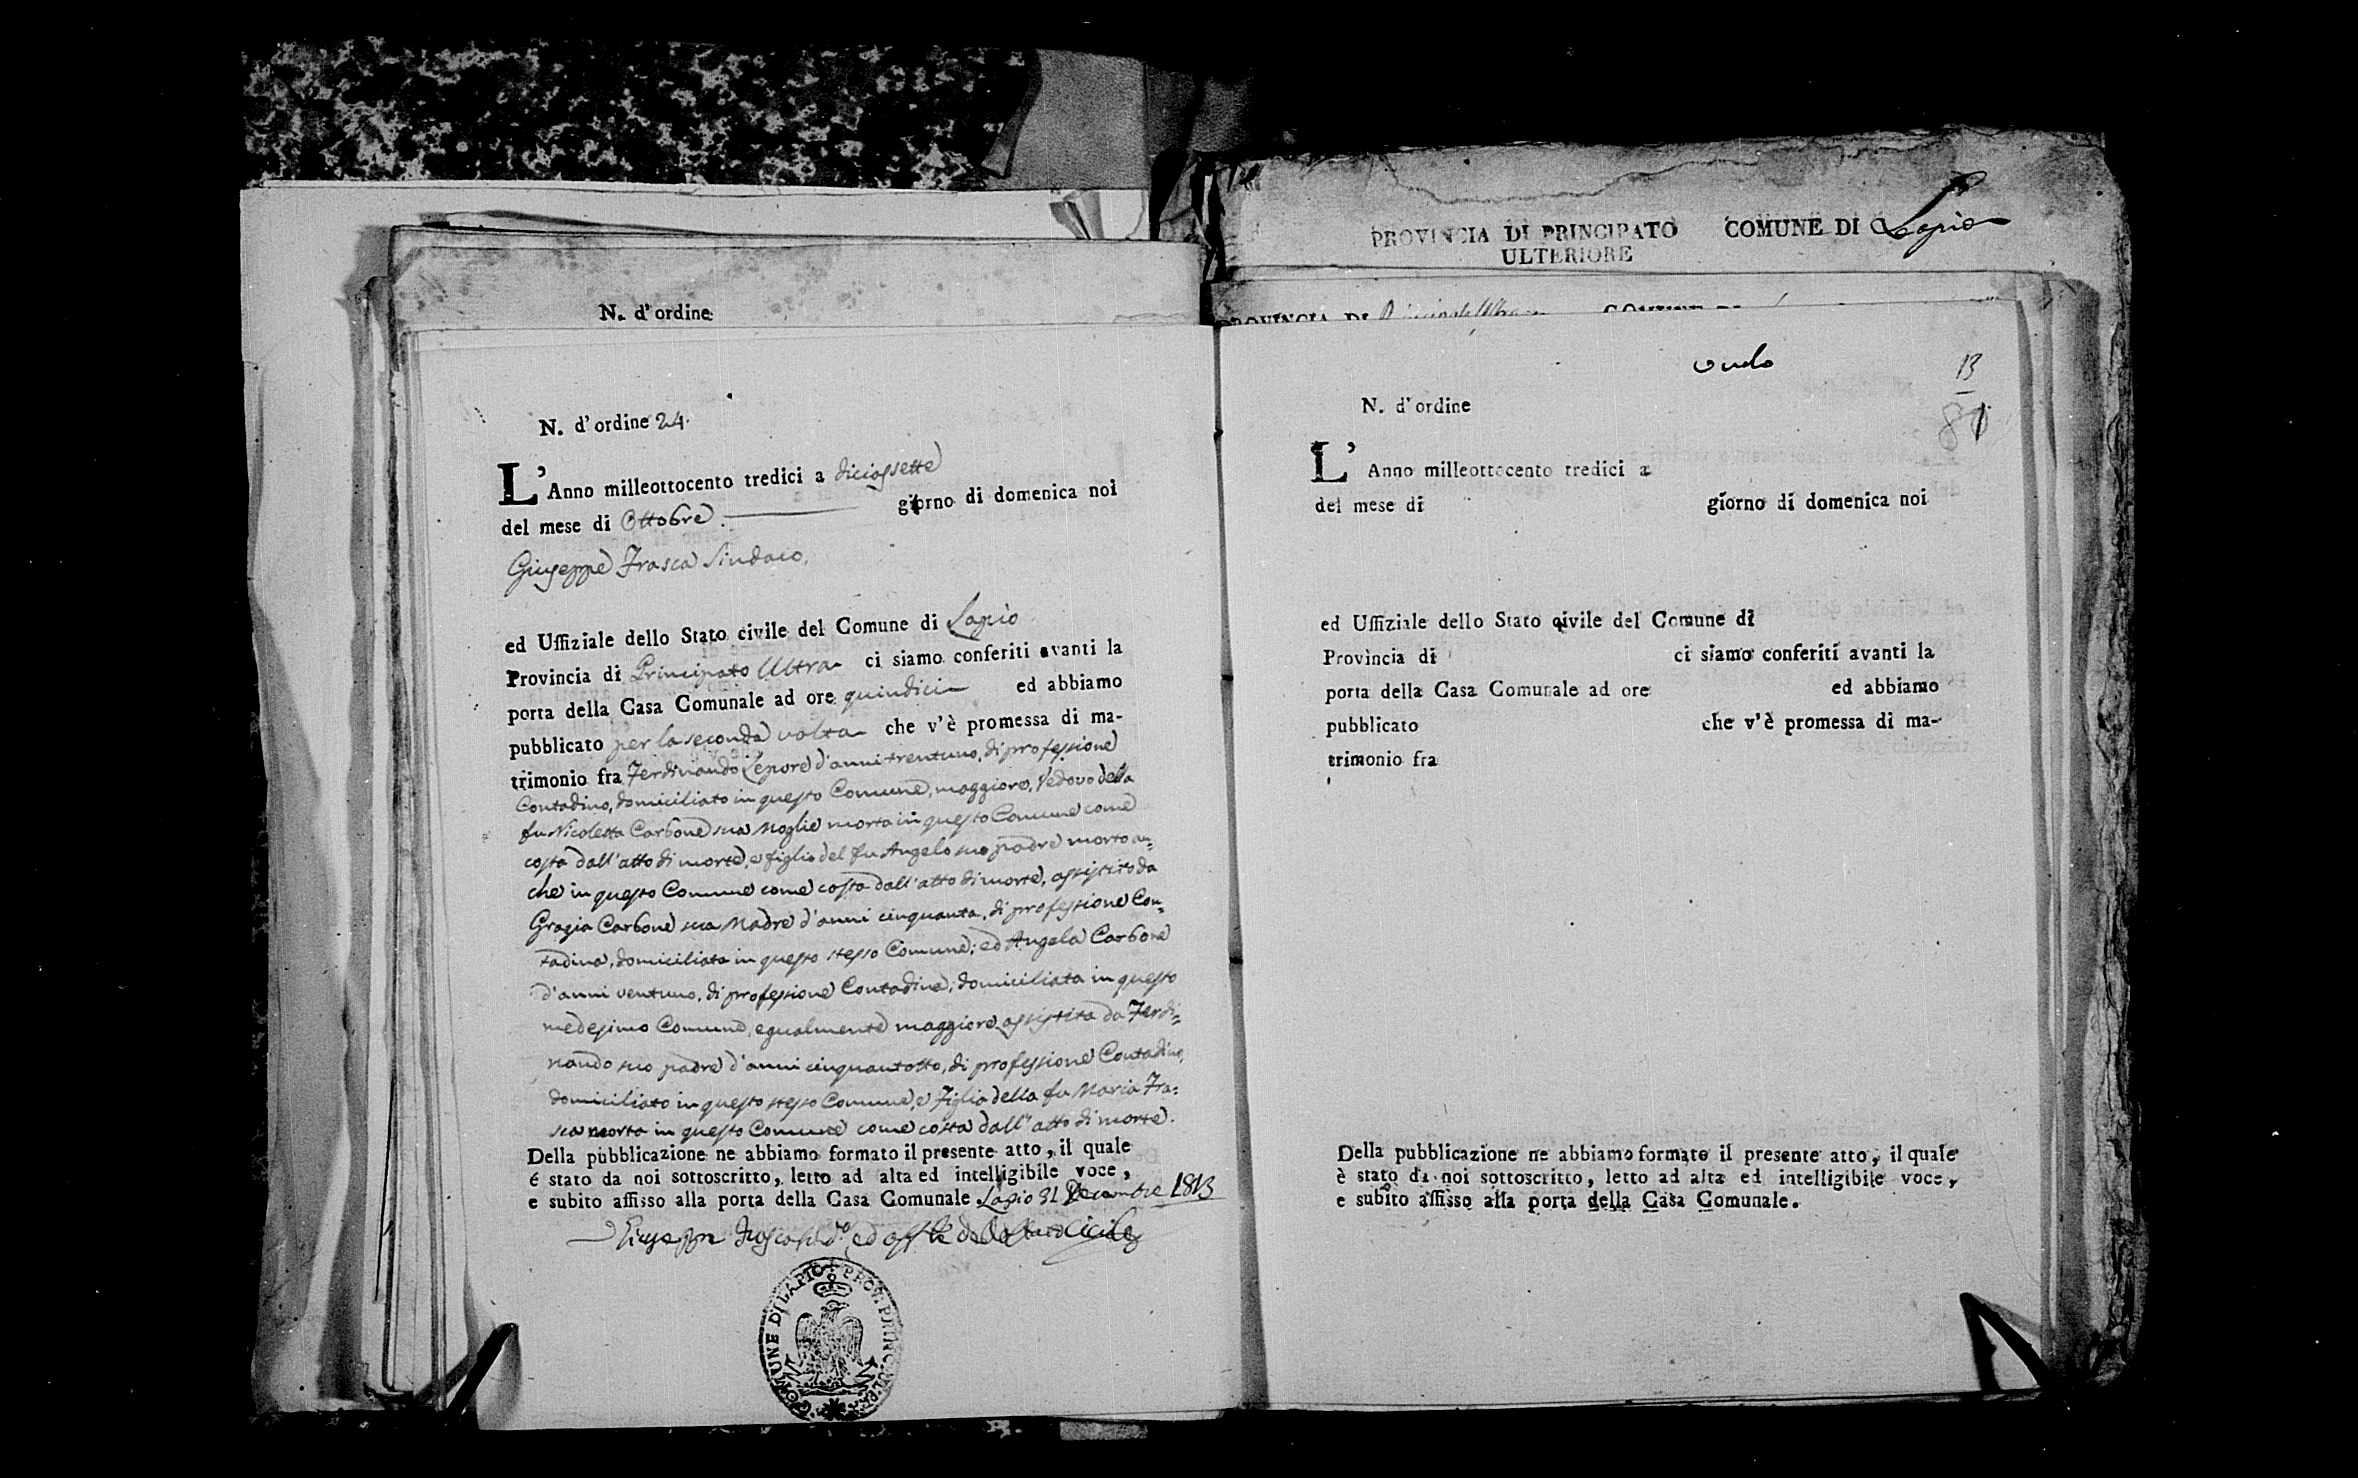 N. d'ordine
N. d'ordine 24.
L'Anno milleottocento tredici a diciassette
del mese di Ottobre. giorno di domenica noi
Giuseppe Frasca Sindaco,
ed Uffiziale dello Stato civile del Comune di Lapio
Provincia di Principato Ultra ci siamo conferiti avanti la
porta della Casa Comunale ad ore quindici ed abbiamo
pubblicato per la seconda volta che v'è promessa di ma-
trimonio fra Ferdinando Lepore d'anni trentuno, di professione
Contadino, domiciliato in questo Comune, maggiore, Vedovo della
fu Nicoletta Carbone sua Moglie morta in questo Comune come
costa dall'atto di morte, e figlio del fu Angelo suo padre morto an=
che in questo Comune come costa dall'atto di morte, assistito da
Grazia Carbone sua Madre d'anni cinquanta, di professione Con=
tadina, domiciliata in questo stesso Comune; ed Angela Carbone
d'anni ventuno, di professione Contadina, domiciliata in questo
medesimo Comune, egualmente maggiore, assistita da Ferdi=
nando suo padre d'anni cinquantotto, di professione Contadino,
domiciliato in questo stesso Comune, e Figlia della fu Maria Fra=
sca morta in questo Comune come costa dall'atto di morte.
Della pubblicazione ne abbiamo formato il presente atto, il quale
é stato da noi sottoscritto, letto ad alta ed intelligibile voce,
e subito affisso alla porta della Casa Comunale. Lapio 31 Decembre 1813
Giuseppe Frasca
COMUNE DI LAPIO PROV. PRINC. ULTER.
PROVINCIA DI PRINCIPATO COMUNE DI Lapio
ULTERIORE
PROVINCIA DI COMUNE
13
N. d'ordine
L'Anno milleottocento tredici a
del mese di giorno di domenica noi
ed Uffiziale dello Stato civile del Comune di
Provincia di ci siamo conferiti avanti la
porta della Casa Comunale ad ore ed abbiamo
pubblicato che v'è promessa di ma-
trimonio fra
Della pubblicazione ne abbiamo formato il presente atto, il quale
è stato da noi sottoscritto, letto ad alta ed intelligibile voce,
e subito affisso alla porta della Casa Comunale.